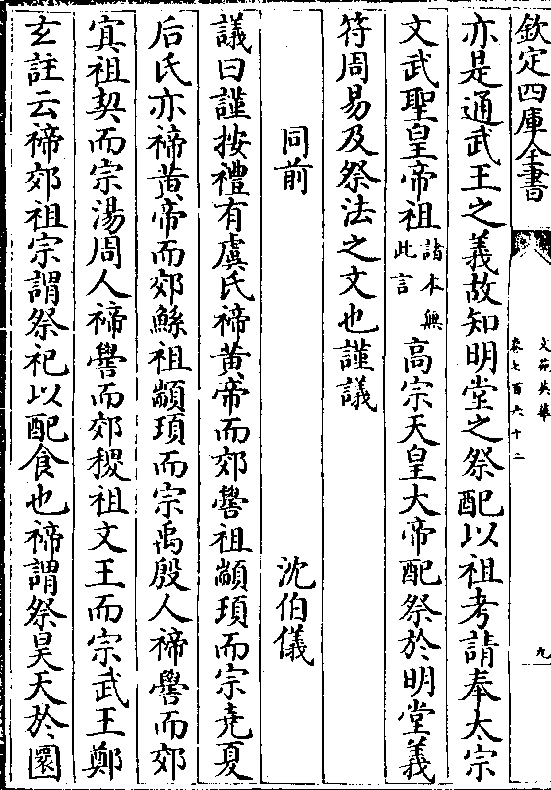 欽定四庫全書
文苑英華
卷七百六十二
九
亦是通武王之義故知明堂之祭配以祖考請奉太宗
文武聖皇帝祖諸本無此言高宗天皇大帝配祭於明堂義
符周易及祭法之文也謹議
同前 沈伯儀
議曰謹按禮有虞氏禘黄帝而郊嚳祖顓頊而宗堯夏
后氏亦禘黄帝而郊鯀祖顓頊而宗禹殷人禘嚳而郊
冥祖契而宗湯周人禘嚳而郊稷祖文王而宗武王鄭
玄註云禘郊祖宗謂祭祀以配食也禘謂祭昊天於圜